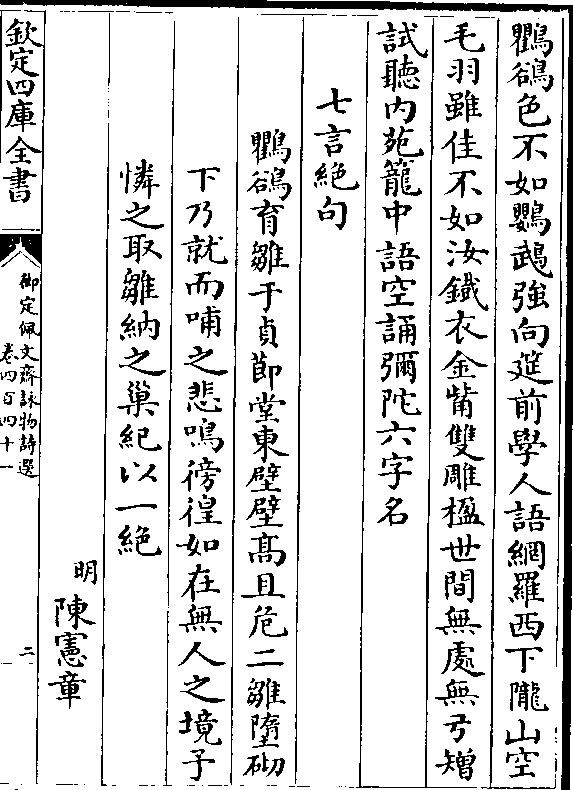 鸜鵒色不如鸚鵡強向筵前學人語網羅西下隴山空
毛羽雖佳不如汝鐵衣金觜雙雕楹世間無處無弓矰
試聽内苑籠中語空誦彌陀六字名
七言絶句
鸜鵒育雛于貞節堂東壁壁髙且危二雛墮砌
下乃就而哺之悲鳴徬徨如在無人之境予
憐之取雛納之巢紀以一絶
明 陳憲章
欽定四庫全書
御定佩文齋詠物詩選
卷四百四十一
二